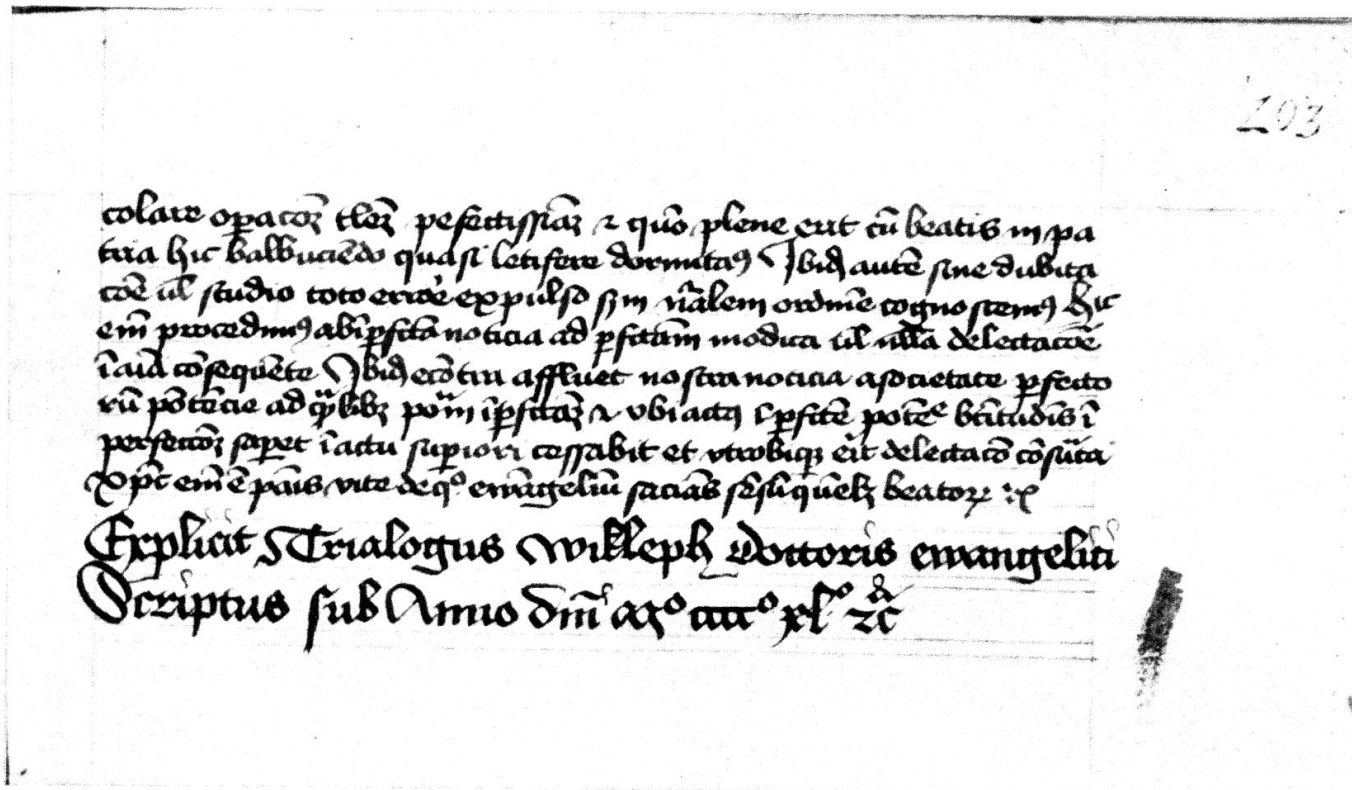 203
colare oꝑacōꝫ tlēꝫ pefectissīaꝫ ⁊ quō plene erit cū beatis in pa
tria hic balbuciēdo quasi letifere dormitaꝰ Ibidē autē sine dubita
cōe ul studio toto errore expulso ordinē cognoscemꝰ hic
em̄ procedimꝰ ab īꝑfcta noticia ad ꝑfctam modica ul nulla delectacōe
ī aīa cōsequēte Ibidē ecōtra affluet nostra noticia a societate ꝑfecto
rū potēcie ad īꝑfctaꝫ ⁊ vbi actꝰ īꝑfcte potēᵉ btitudīs ī
perfeccōꝫ saperet ī actu suꝑiori cessabit et vtrobiqꝫ erit delectacō
Xp̄c em̄ ē pāis vite de qᵒ ewāgeliū sacians beatoꝝ
Explicit Trialogus Wikleph doctoris ewangelici
Scriptus sub Anno dni Mᵒ ccccᵒ xlᵒ